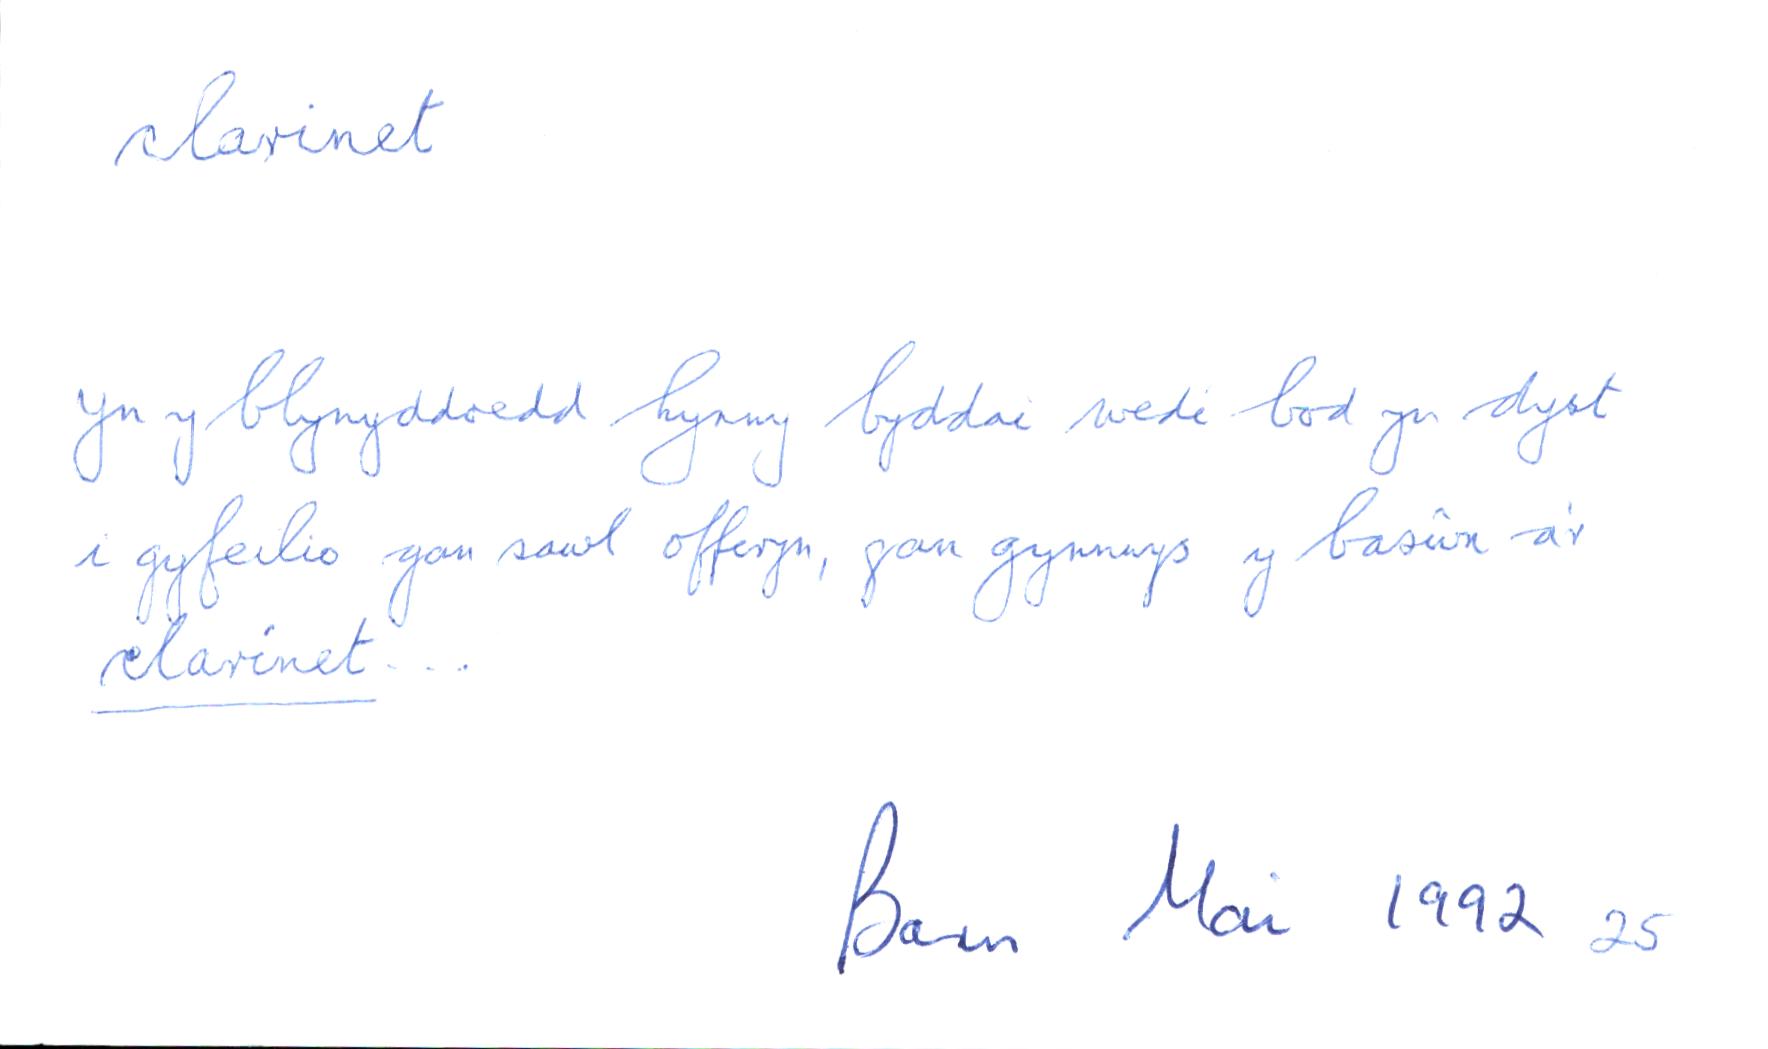 clarinet
Yn y blynyddoedd hynny byddai wedi bod yn dyst
i gyfeilio gan sawl offeryn, gan gynnwys y basŵn a'r
clarinet...
Barn Mai 1992 25